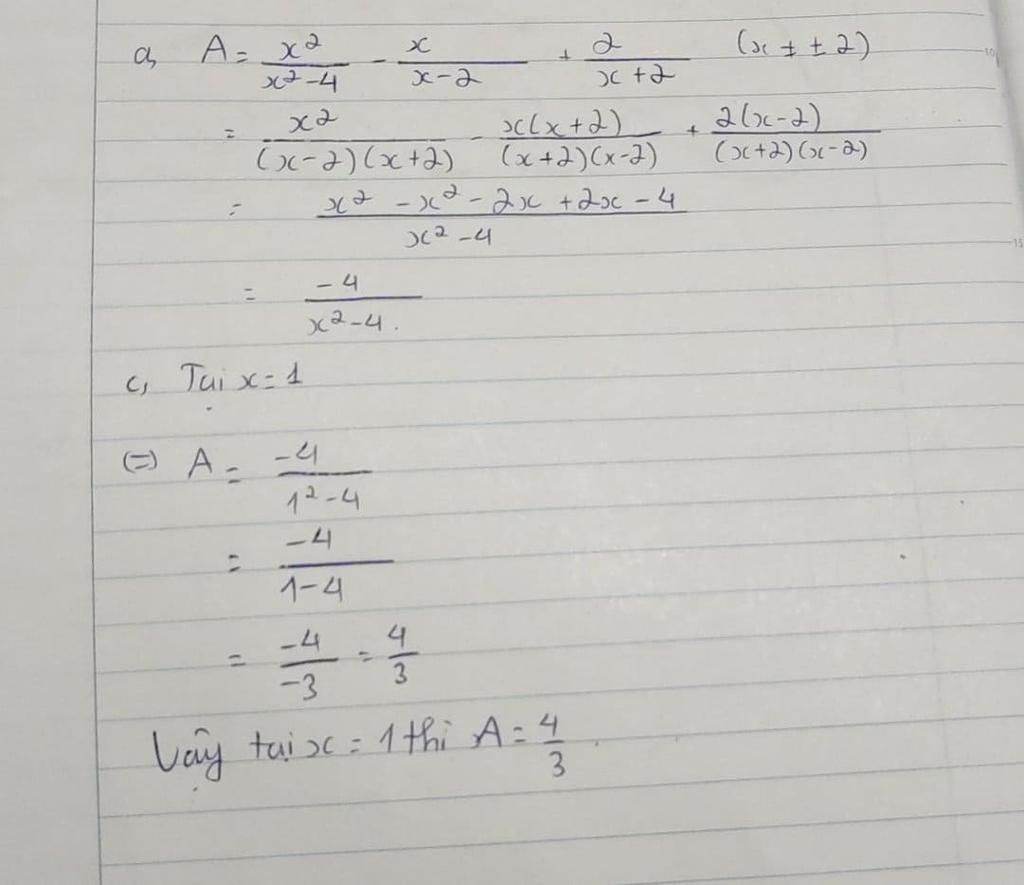 a, A = x²/(x²-4) - x/(x-2) + 2/(x+2) (x ≠ ±2)
= x²/((x-2)(x+2)) - x(x+2)/((x+2)(x-2)) + 2(x-2)/((x+2)(x-2))
= (x² - x² - 2x + 2x - 4)/(x²-4)
= -4/(x²-4).
c, Tại x = 1
(=) A = -4/(1²-4)
= -4/(1-4)
= -4/-3 = 4/3
Vậy tại x = 1 thì A = 4/3.